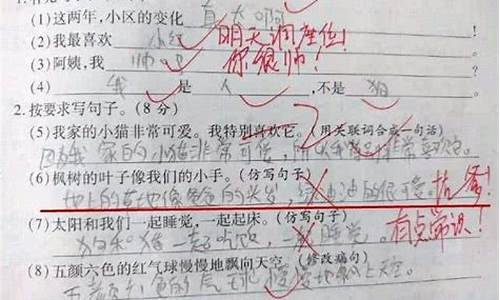 (1)这两年,小区的变化 真大啊
(2)我最喜欢 小红 明天调座位!
(3)阿姨,我 帅吧 你很帅!
(4) 我 是 人 ,不是 狗
2.按要求写句子。(8分)
(5)我家的小猫非常可爱。我特别喜欢它。(用关联词合成一句话)
因为我家的小猫非常可爱,所以我特别非常喜欢它。
(6)枫树的叶子像我们的小手。(仿写句子)
地上的草地像爸爸的头发,绿油油的很可爱。
(7)太阳和我们一起睡觉,一起起床。(仿写句子) 有点常识!
狗和猪一起吃饭,一起睡觉。
(8)五颜六色的红气球慢慢地飘向天空。(修改病句)
五颜六色的气球慢慢地飘上天空。